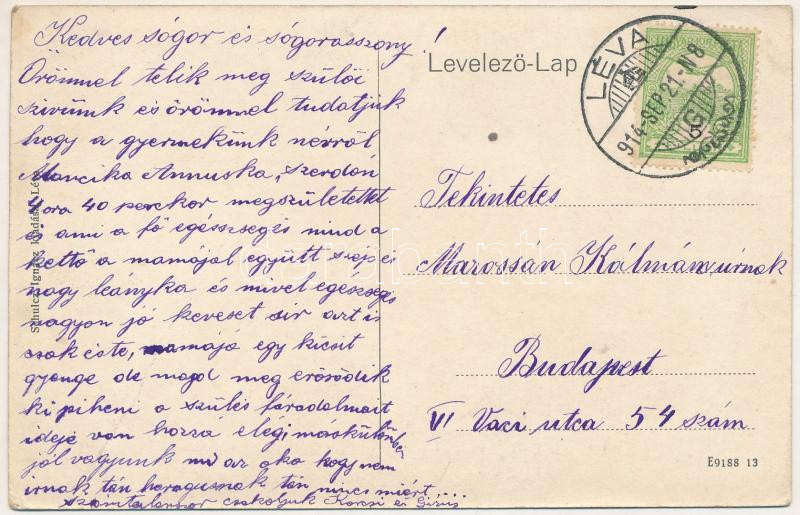 Kedves sógor és sógorasszony!
Örömmel telik meg szülői
szivünk és örömmel tudatjuk
hogy a gyermekünk névről
Mancika Annuska, szerdán
4 óra 40 perckor megszületett
és ami a fő egészséges mind a
kettő a mamájal együtt szép és
nagy leányka és mivel egészséges
nagyon jó keveset sir azt is
csak este, mamájá egy kicsit
gyenge de majd meg erősödik
ki piheni a szülés fáradalmait
ideje van hozzá elég, máskülönben
jól vagyunk mi az oka hogy nem
irnak tán haragusznak tán nincs miért,...
számtalanszor csókoljuk Karcsi és
Levelező-Lap
LÉVA
914 SEP 21 - N 8
G
Tekintetes
Marossán Kálmán urnak
Budapest
VI Vaci utca 54 szám
E9188 13
Schulcz Ignácz kiadása Léva
darabanth